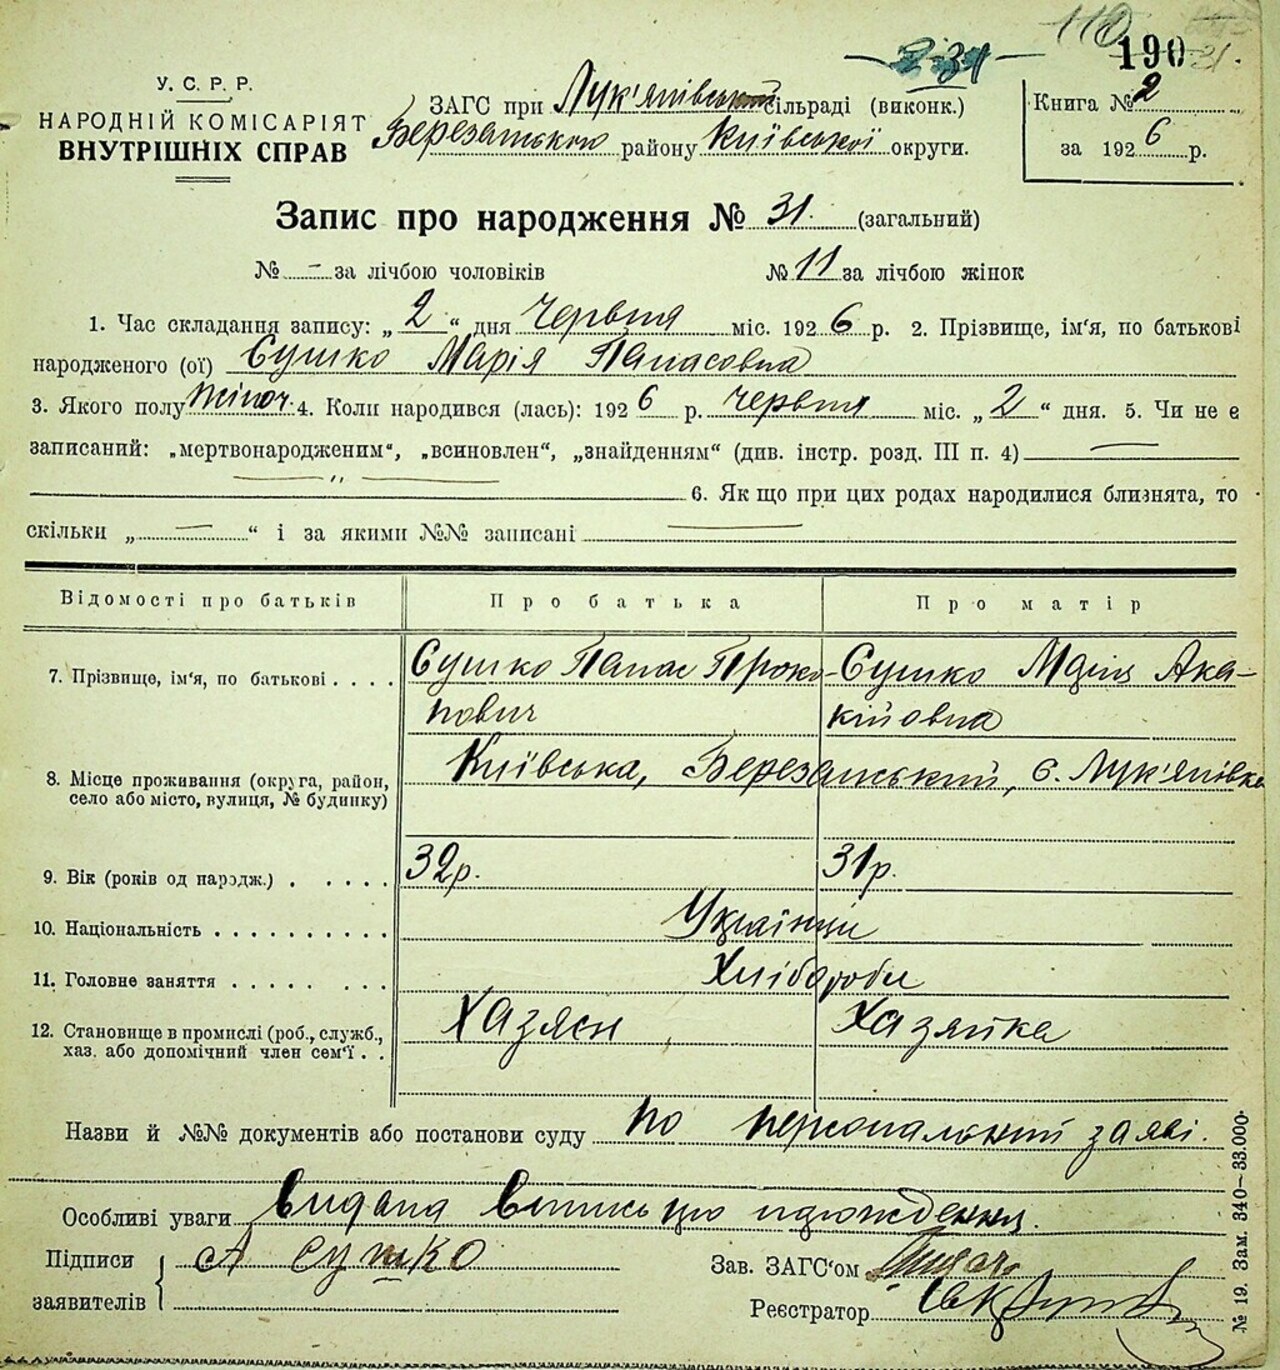 190
У. С. Р. Р.
НАРОДНІЙ КОМІСАРІЯТ
ВНУТРІШНІХ СПРАВ
ЗАГС при Лук'янівській сільраді (виконк.)
Березанського району Київської округи.
Книга № 2
за 1926 р.
Запис про народження № 31. (загальний)
№ – за лічбою чоловіків № 11 за лічбою жінок
1. Час складання запису: „2“ дня Червня міс. 1926 р. 2. Прізвище, ім'я, по батькові
народженого (ої) Сушко Марія Панасовна
3. Якого полу жіноч. 4. Коли народився (лась): 1926 р. червня міс. „2“ дня. 5. Чи не є
записаний: „мертвонародженим“, „всиновлен“, „знайденням“ (див. інстр. розд. III п. 4) —
— „ — 6. Як що при цих родах народилися близнята, то
скільки „—“ і за якими №№ записані —
Відомості про батьків Про батька Про матір
7. Прізвище, ім'я, по батькові . . . . Сушко Панас Проко- Сушко Марія Ака-
пович кійовна
8. Місце проживання (округа, район,
село або місто, вулиця, № будинку) Київська, Березанський, с. Лук'янівка
9. Вік (років од народж.) . . . . . 32р. 31р.
10. Національність . . . . . . . . . . Українці
11. Головне заняття . . . . . . . . Хлібороби
12. Становище в промислі (роб., служб.,
хаз. або допомічний член сем'ї . . Хазяєн Хазяйка
Назви й №№ документів або постанови суду по персональній заяві.
Особливі уваги Видана Випись про народження.
Підписи
заявителів А Сушко
Зав. ЗАГС'ом
Реєстратор
№ 19. Зам. 340—33.000.